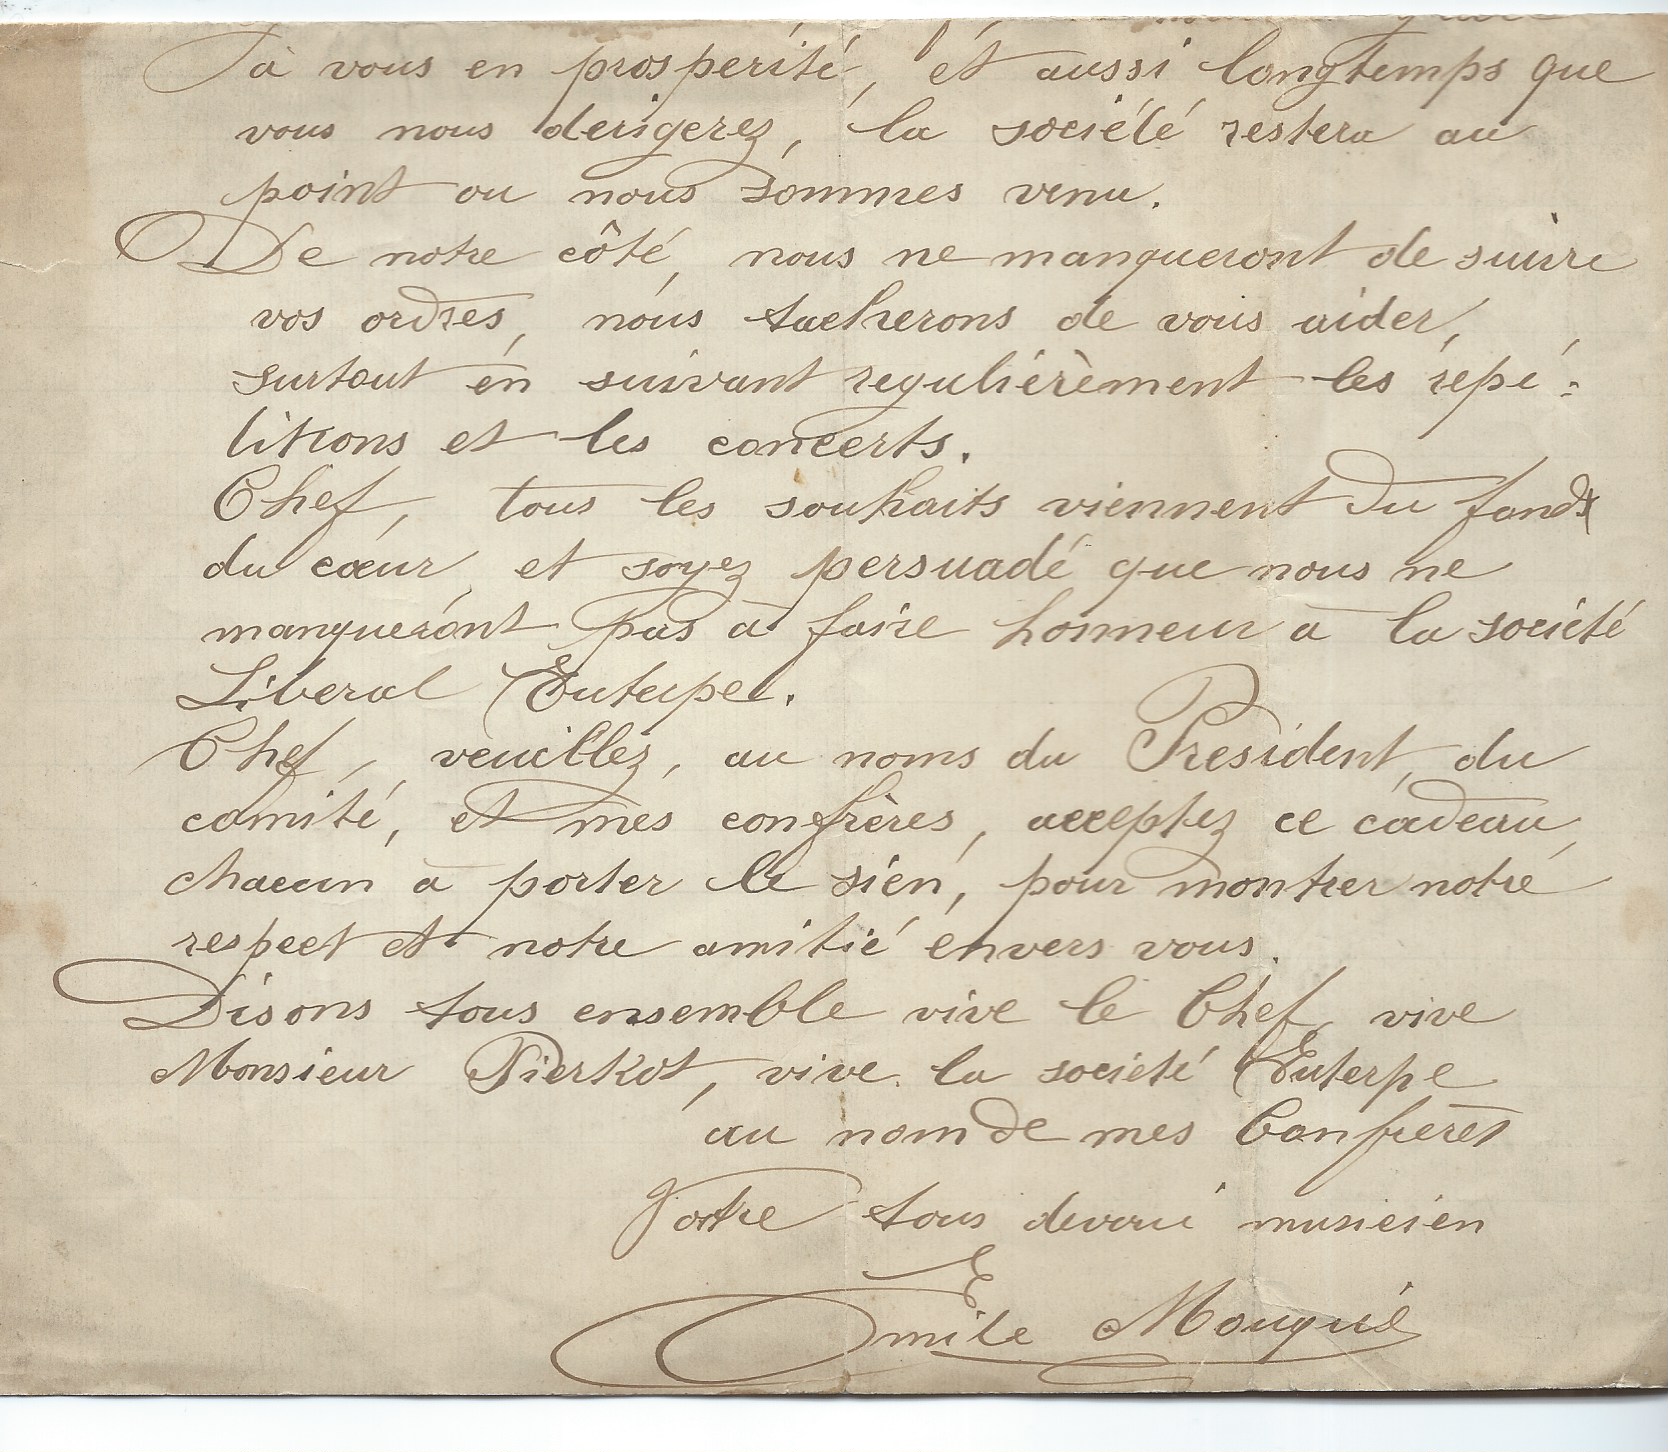 à vous en prosperité, et aussi longtemps que
vous nous derigerez, la société restera au
point ou nous sommes venu.
De notre côté, nous ne manqueront de suivre
vos ordres, nous tacherons de vous aider,
surtout en suivant regulièrèment les répé=
titions et les concerts.
Chef, tous les souhaits viennent du fond
du cœur, et soyez persuadé que nous ne
manqueront pas à faire honneur à la société
Liberal Euterpe.
Chef, veuillez, au noms du President, du
comité, et mes confrères, acceptez ce cadeau,
chacun à porter le sien, pour montrer notre
respect et notre amitié envers vous.
Disons tous ensemble vive le Chef, vive
Monsieur Pierkot, vive la societé Euterpe
au nom de mes Confrères
Votre tous devoué musicien
Emile Mouquié